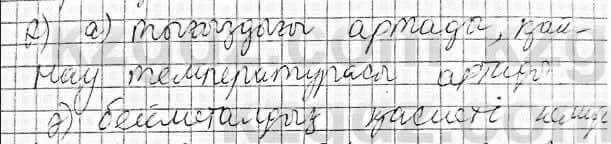 2) а) тығыздығы артады, қай-
нау температурасы артады
ә) бейметалдық қасиеті кемиді